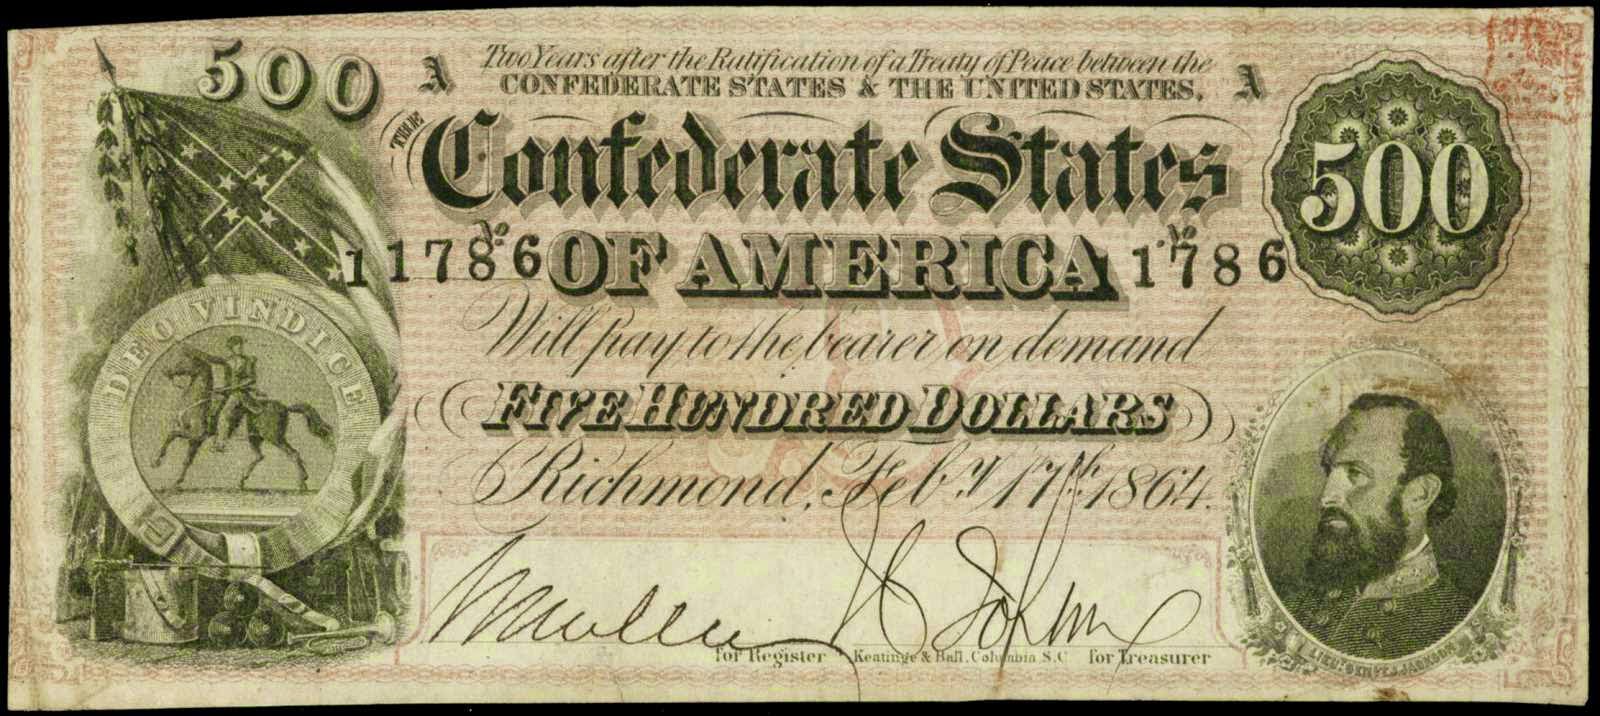 500
A Two Years after the Ratification of a Treaty of Peace between the A
CONFEDERATE STATES & THE UNITED STATES.
THE Confederate States
500
No 11786 OF AMERICA No 1786
DEO VINDICE
Will pay to the bearer on demand
FIVE HUNDRED DOLLARS
Richmond, Feby. 17th 1864.
for Register Keatinge & Ball, Columbia S.C. for Treasurer
LIEUT. GEN. T. J. JACKSON